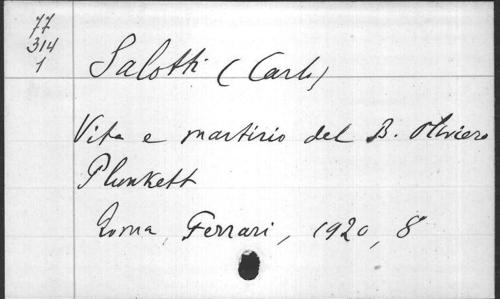 77
314
1
Salotti (Carlo)
Vita e martirio del B. Oliviero
Plunkett
Roma, Ferrari, 1920, 8